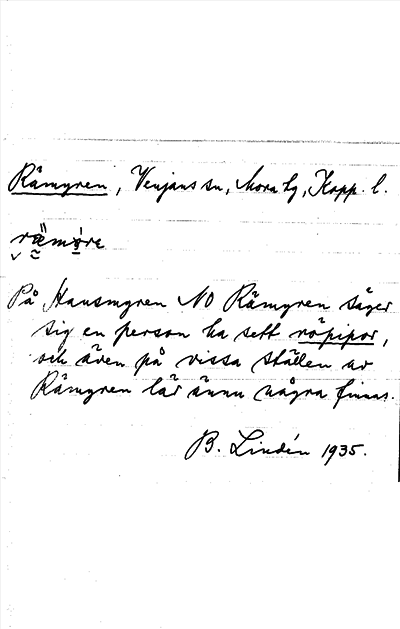 Råmyren, Venjans sn, Mora tg, Kopp. l.
På Hansmyren NO Råmyren säger
sig en person ha sett röpipor,
och även på vissa ställen av
Råmyren lär ännu några finnas.
B. Lindén 1935.